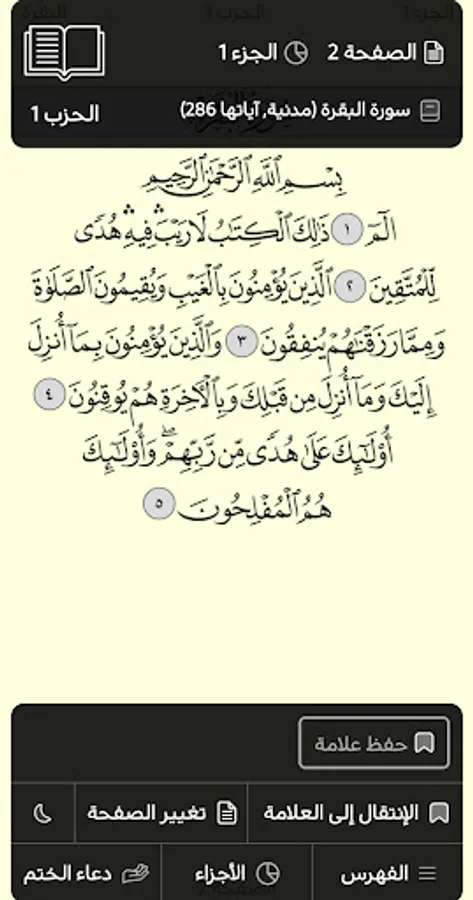 الجزء 1 الحزب 1 البقرة
الصفحة 2 الجزء 1
سورة البقرة (مدنية, آياتها 286) الحزب 1
بِسْمِ ٱللَّهِ ٱلرَّحْمَٰنِ ٱلرَّحِيمِ
الٓمٓ ١ ذَٰلِكَ ٱلْكِتَٰبُ لَا رَيْبَ ۛ فِيهِ ۛ هُدًى
لِّلْمُتَّقِينَ ٢ ٱلَّذِينَ يُؤْمِنُونَ بِٱلْغَيْبِ وَيُقِيمُونَ ٱلصَّلَوٰةَ
وَمِمَّا رَزَقْنَٰهُمْ يُنفِقُونَ ٣ وَٱلَّذِينَ يُؤْمِنُونَ بِمَآ أُنزِلَ
إِلَيْكَ وَمَآ أُنزِلَ مِن قَبْلِكَ وَبِٱلْأَخِرَةِ هُمْ يُوقِنُونَ ٤
أُو۟لَٰٓئِكَ عَلَىٰ هُدًى مِّن رَّبِّهِمْ ۖ وَأُو۟لَٰٓئِكَ
هُمُ ٱلْمُفْلِحُونَ ٥
حفظ علامة
الإنتقال إلى العلامة تغيير الصفحة
الفهرس الأجزاء دعاء الختم